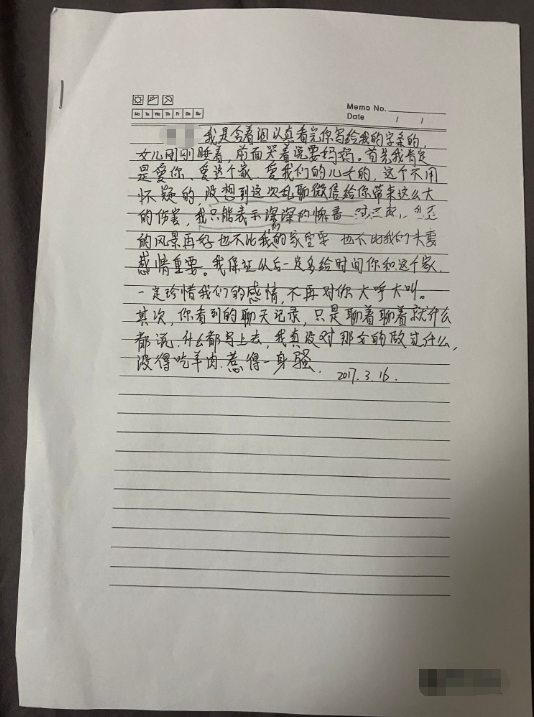 Memo No.
Date / /
Mo Tu We Th Fr Sa Su
我是含着泪认真看完你写给我的字条的
女儿刚刚睡着，前面哭着说要妈妈。首先我肯定
是爱你、爱这个家、爱我们的儿女的，这个不用
怀疑的，没想到这次乱聊微信给你带来这么大
的伤害，我只能表示深深的
的风景再好也不比我的家重要 也不比我们夫妻
感情重要。我保证从后一定多给时间你和这个家
一定珍惜我们的感情，不再对你大呼大叫。
其次，你看到的聊天记录，只是聊着聊着就什么
都说，什么都写上去，我真没对那女的做过什么，
没得吃羊肉，惹得一身骚
2017.3.16.